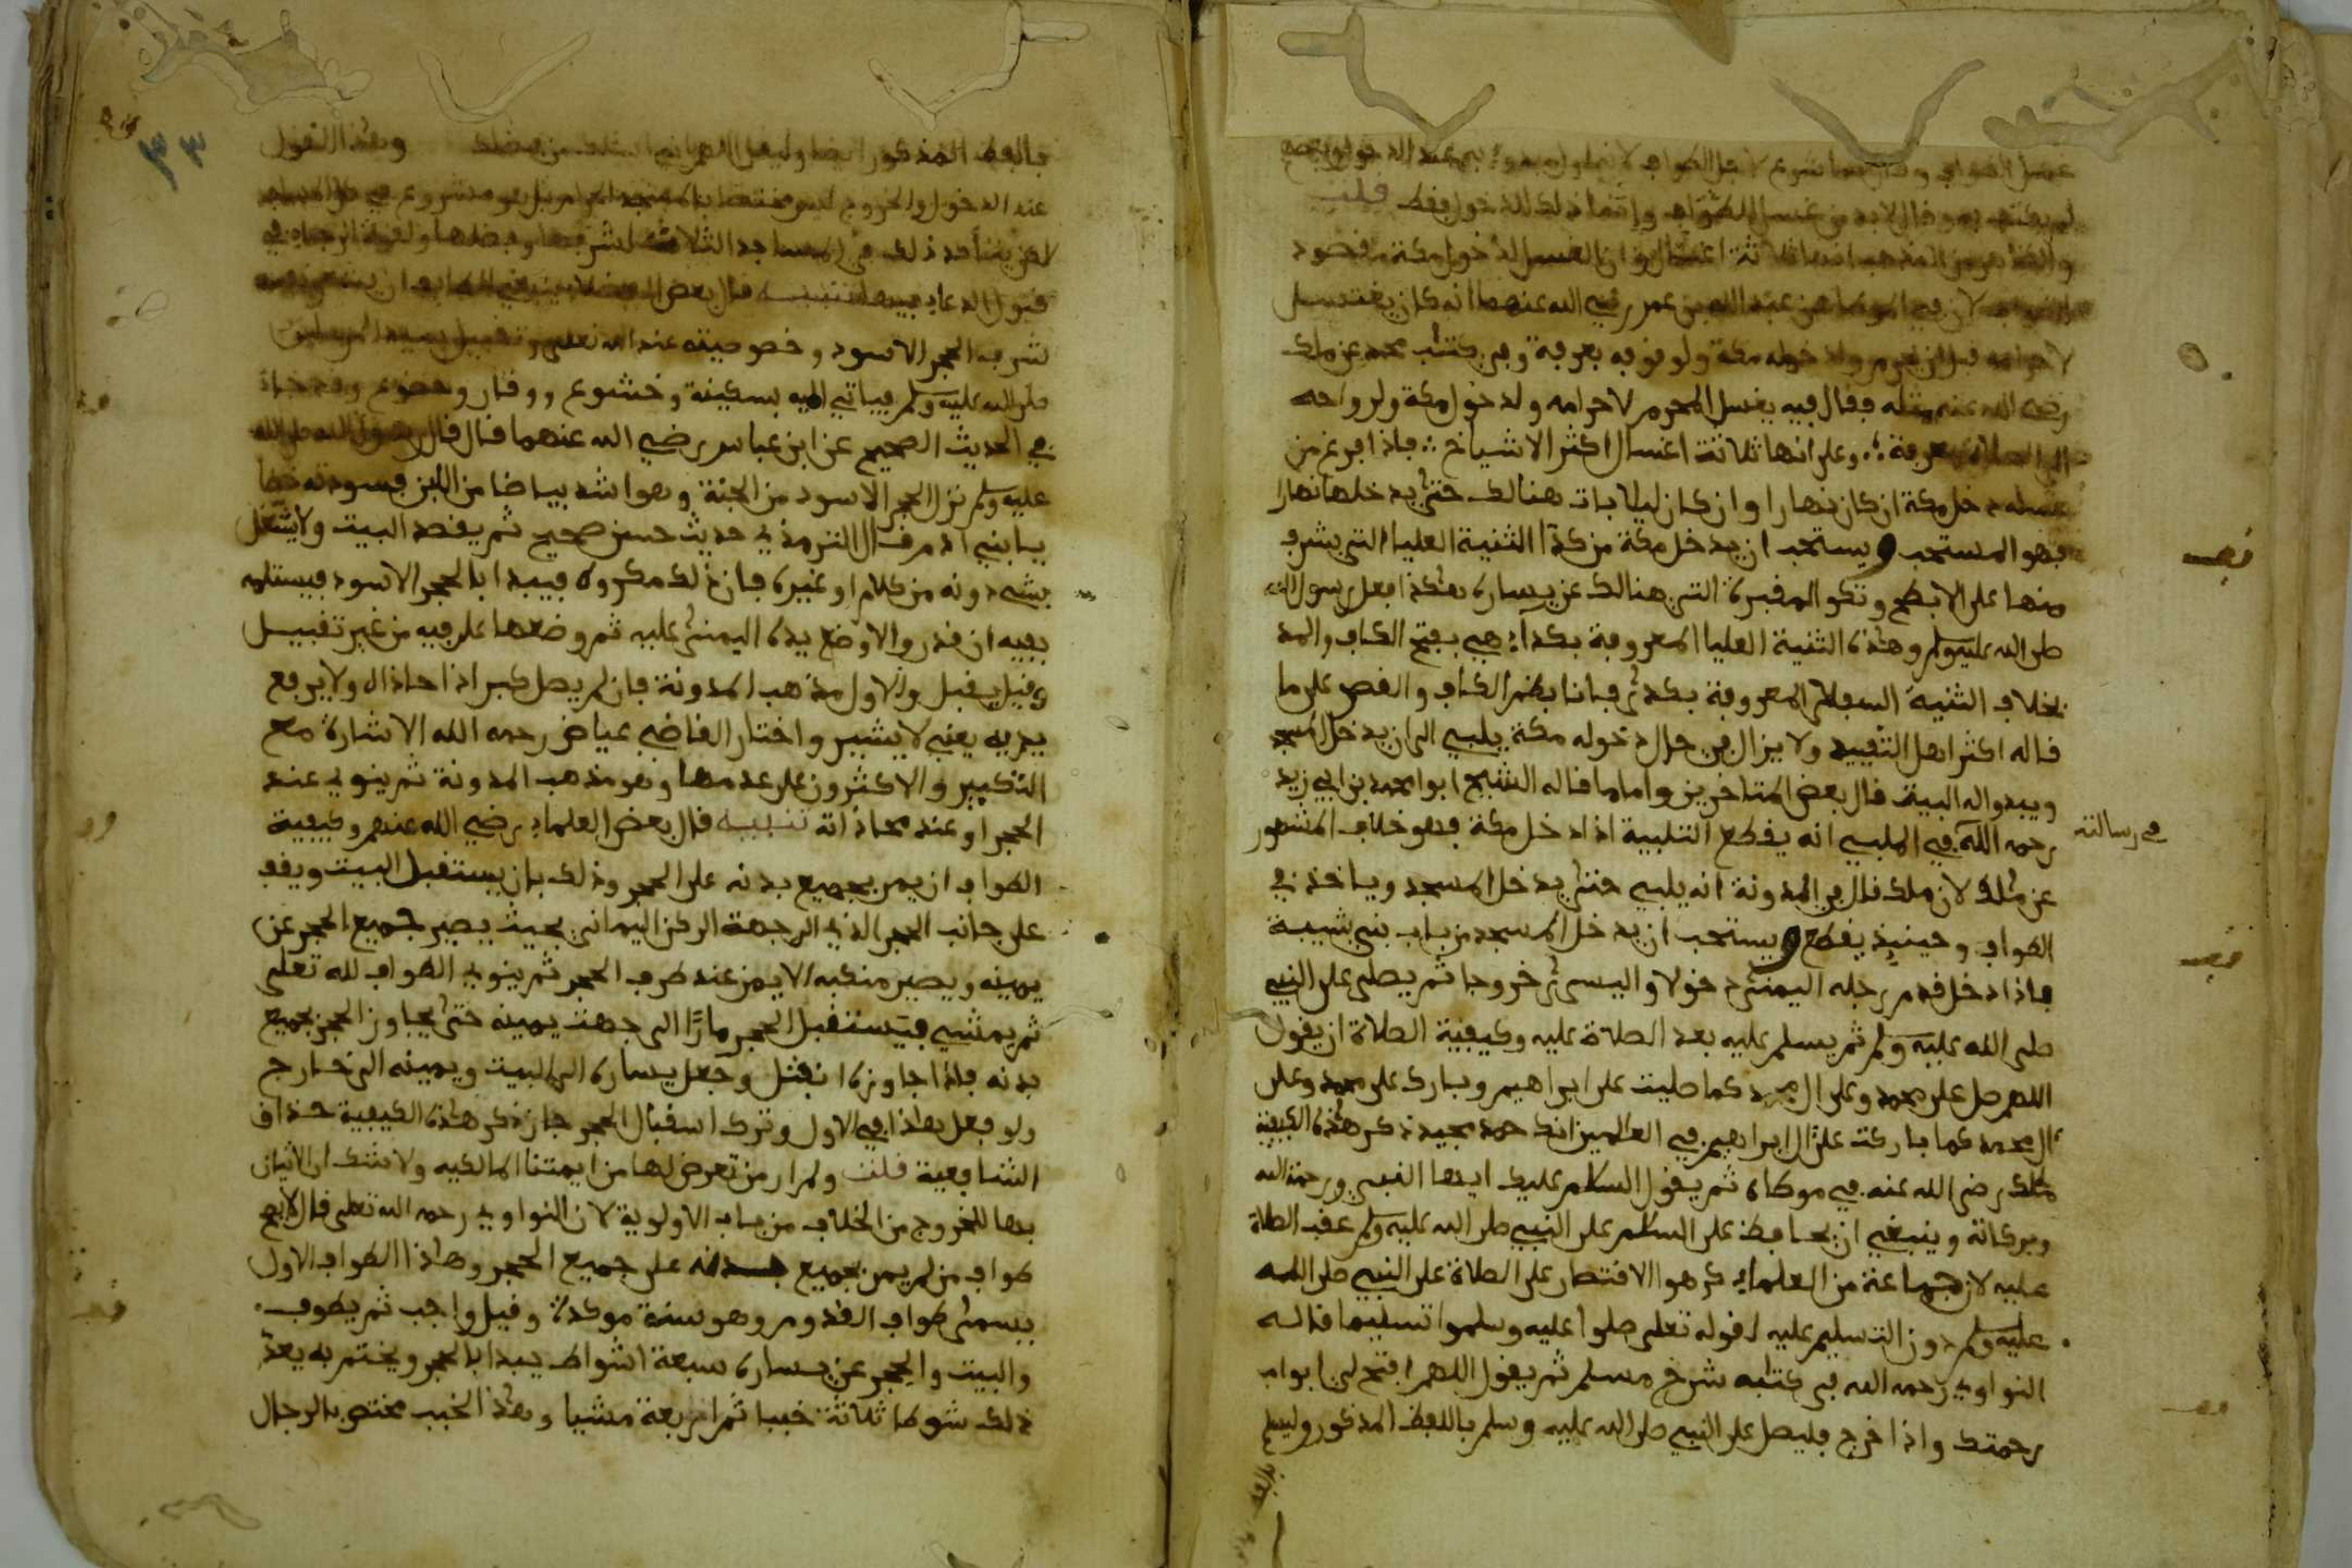 لم يكتف به وقال لابد من غسل للطواف وإنما ذلك للدخول فقط قلت
والظاهر من المذهب انها ثلاثة اغتسال وان الغسل لدخول مكة مقصود
لان في الموطا عن عبد الله بن عمر رضي الله عنهما انه كان يغتسل
لاحرامه قبل ان يحرم ولدخوله مكة ولوقوفه بعرفة وفي كتاب محمد عن ملك
رضي الله عنه مثله فقال فيه يغسل المحرم لاحرامه ولدخول مكة ولرواحه
الى الصلاة بعرفة وعلى انها ثلاثة اغسال اكثر الاشياخ فاذا فرغ من
غسله دخل مكة ان كان نهارا وان كان ليلا بات هنالك حتى يدخلها نهارا
فهو المستحب ويستحب ان يدخل مكة من كدآ الثنية العليا التي يشرف
منها على الابطح وتكو المقبرة التي هنالك عن يساره هكذا فعل رسول الله
صلى الله عليه وسلم وهذه الثنية العليا المعروفة بكداء هي بفتح الكاف والمد
بخلاف الثنية السفلى المعروفة بكدى فانا بضم الكاف والقصر على ما
قاله اكثر اهل التقييد ولا يزال في حال دخوله مكة يلبي الى ان يدخل المسجد
ويبدو له البيت قال بعض المتاخرين واما ما قاله الشيخ ابو محمد بن ابي زيد
رحمه الله في الملبي انه يقطع التلبية اذا دخل مكة فهو خلاف المشهور
في رسالته
عن ملك لان ملك قال في المدونة انه يلبي حتى يدخل المسجد وياخذ في
الطواف وحينيذ يقطع ويستحب ان يدخل المسجد من باب بني شيبة
فاذا دخل قدم رجله اليمنى دخولا واليسرى خروجا ثم يصلى على النبي
صلى الله عليه وسلم ثم يسلم عليه بعد الصلاة عليه وكيفية الصلاة ان يقول
اللهم صل على محمد وعلى ال محمد كما صليت على ابراهيم وبارك على محمد وعلى
ال محمد كما باركت على ال ابراهيم في العالمين انك حميد مجيد ذكر هذه الكيفية
ملك رضي الله عنه في موطاه ثم يقول السلام عليك ايها النبي ورحمة الله
وبركاته وينبغي ان يحافظ على السلام على النبي صلى الله عليه وسلم عقب الصلاة
عليه لان جماعة من العلماء كرهوا الاقتصار على الصلاة على النبي صلى الله
عليه وسلم دون التسليم عليه لقوله تعلى صلوا عليه وسلموا تسليما قاله
النواوي رحمه الله في كتابه شرح مسلم ثم يقول اللهم افتح لي ابواب
رحمتك واذا خرج فليصل على النبي صلى الله عليه وسلم باللفظ المذكور وليسلم
باللفظ
٣٣
باللفظ المذكور ايضا وليقل اللهم اني اسئلك من فضلك وهذا القول
عند الدخول والخروج ليس مختصا بالمسجد الحرام بل هو مشروع في
لكن يتاكد ذلك في المساجد الثلاثة لشرفها وفضلها ولقوة الرجاء في
قبول الدعاء فيها تنبيه قال بعض الفضلاء ينبغي للطايف ان يستشعر
شرف الحجر الاسود وخصوصيته عند الله تعلى وتقبيل سيد المرسلين
صلى الله عليه وسلم فياتي اليه بسكينة وخشوع ووقار وخضوع وقد جاء
في الحديث الصحيح عن ابن عباس رضي الله عنهما قال قال رسول الله صلى الله
عليه وسلم نزل الحجر الاسود من الجنة وهو اشد بياضا من اللبن فسودته خطا
يا بني ادم قال الترمذي حديث حسن صحيح ثم يقصد البيت ولا يشتغل
بشيء دونه من كلام او غيره فان ذلك مكروه فيبدا بالحجر الاسود فيستلمه
بفيه ان قدر والا وضع يده اليمنى عليه ثم وضعها على فيه من غير تقبيل
وقيل يقبل والاول مذهب المدونة فان لم يصل كبر اذا حاذاه ولا يرفع
يديه يعني لا يشير واختار القاضي عياض رحمه الله الاشارة مع
التكبير والاكثرون على عدمها وهو مذهب المدونة ثم ينوي عند
الحجر او عند محاذاته تنبيه قال بعض العلماء رضي الله عنهم وكيفية
الطواف ان يمر بجميع بدنه على الحجر وذلك بان يستقبل البيت ويقف
على جانب الحجر الذي الى جهة الركن اليماني بحيث يصير جميع الحجر عن
يمينه ويصير منكبه الايمن عند طرف الحجر ثم ينوي الطواف لله تعلى
ثم يمشي فيستقبل الحجر مارًّا الى جهت يمينه حتى يجاوز الحجر بجميع
بدنه فاذا جاوزه انفتل وجعل يساره الى البيت ويمينه الى خارج
ولو فعل هذا في الاول وترك استقبال الحجر جاز ذكر هذه الكيفية حذاق
الشافعية قلت ولم ار من تعرض لها من ايمتنا المالكيه ولا شك ان الاتيان
بها للخروج من الخلاف من باب الاولوية لان النواوي رحمه الله تعلى قال لا يصح
طواف من لم يمر بجميع بدنه على جميع الحجر وهاذا الطواف الاول
يسمى طواف القدوم وهو سنة موكدة وقيل واجب ثم يطوف
والبيت والحجر عن يساره سبعة اشواط يبدا بالحجر ويختم به يعد
ذلك شوطا ثلاثة خببا ثم اربعة مشيا وهذا الخبب مختص بالرجال